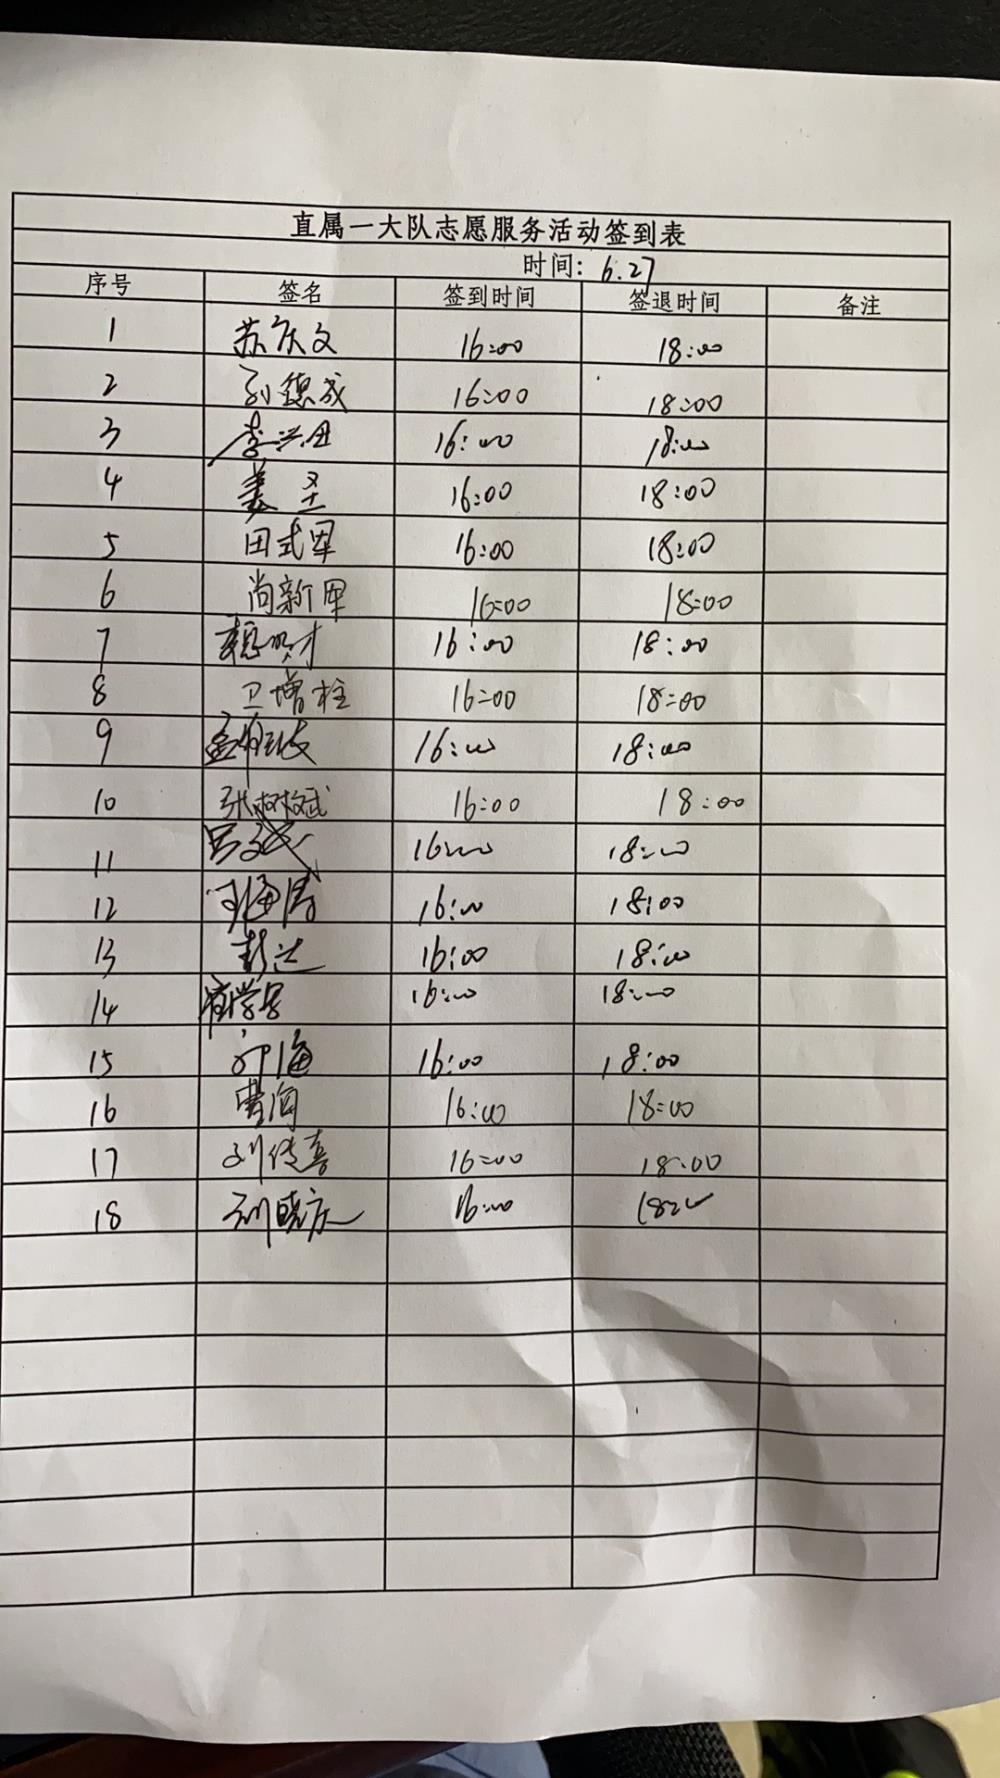 直属一大队志愿服务活动签到表
时间: 6.27
序号 签名 签到时间 签退时间 备注
1 苏庆文 16:00 18:00
2 孙德成 16:00 18:00
3 李兴田 16:00 18:00
4 姜圣 16:00 18:00
5 田式军 16:00 18:00
6 尚新军 16:00 18:00
7 16:00 18:00
8 卫增柱 16:00 18:00
9 16:00 18:00
10 张树斌 16:00 18:00
11 16:00 18:00
12 海涛 16:00 18:00
13 彭达 16:00 18:00
14 16:00 18:00
15 海 16:00 18:00
16 曹洵 16:00 18:00
17 刘传喜 16:00 18:00
18 刘晓庆 16:00 18:00